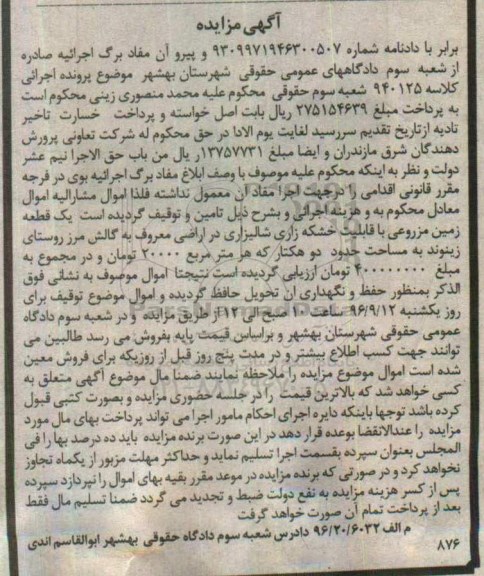 آگهی مزایده
برابر با دادنامه شماره ۹۳۰۹۹۷۱۹۴۶۳۰۰۵۰۷ و پیرو آن مفاد برگ اجرائیه صادره
از شعبه سوم دادگاههای عمومی حقوقی شهرستان بهشهر موضوع پرونده اجرائی
کلاسه ۹۴۰۱۲۵ شعبه سوم حقوقی محکوم علیه محمد منصوری زینی محکوم است
به پرداخت مبلغ ۲۷۵۱۵۴۶۳۹ ریال بابت اصل خواسته و پرداخت خسارت تاخیر
تادیه ازتاریخ تقدیم سررسید لغایت یوم الادا در حق محکوم له شرکت تعاونی پرورش
دهندگان شرق مازندران و ایضا مبلغ ۱۳۷۵۷۷۳۱ر یال من باب حق الاجرا نیم عشر
دولت و نظر به اینکه محکوم علیه موصوف با وصف ابلاغ مفاد برگ اجرائیه بوی در فرجه
مقرر قانونی اقدامی را درجهت اجرا مفاد آن معمول نداشته فلذا اموال مشارالیه اموال
معادل محکوم به و هزینه اجرائی و بشرح ذیل تامین و توقیف گردیده است یک قطعه
زمین مزروعی با قابلیت خشکه زاری شالیزاری در اراضی معروف به گالش مرز روستای
زینوند به مساحت حدود دو هکتار که هر متر مربع ۲۰۰۰۰ تومان و در مجموع به
مبلغ ۴۰۰۰۰۰۰۰۰ تومان ارزیابی گردیده است نتیجتا اموال موصوف به نشانی فوق
الذکر بمنظور حفظ و نگهداری آن تحویل حافظ گردیده و اموال موضوع توقیف برای
روز یکشنبه ۹۶/۹/۱۲ ساعت ۱۰ صبح الی ۱۲ از طریق مزایده و در شعبه سوم دادگاه
عمومی حقوقی شهرستان بهشهر و براساس قیمت پایه بفروش می رسد طالبین می
توانند جهت کسب اطلاع بیشتر و در مدت پنج روز قبل از روزیکه برای فروش معین
شده است اموال موضوع مزایده را ملاحظه نمایند ضمنا مال موضوع آگهی متعلق به
کسی خواهد شد که بالاترین قیمت را در جلسه حضوری مزایده و بصورت کتبی قبول
کرده باشد توجها باینکه دایره اجرای احکام مامور اجرا می تواند پرداخت بهای مال مورد
مزایده را عندالاقتضا بوعده قرار دهد در این صورت برنده مزایده باید ده درصد بها را فی
المجلس بعنوان سپرده بقسمت اجرا تسلیم نماید و حداکثر مهلت مزبور از یکماه تجاوز
نخواهد کرد و در صورتی که برنده مزایده در موعد مقرر بقیه بهای اموال را نپردازد سپرده
پس از کسر هزینه مزایده به نفع دولت ضبط و تجدید می گردد ضمنا تسلیم مال فقط
بعد از پرداخت تمام آن صورت خواهد گرفت
م الف ۹۶/۲۰/۶۰۳۲ دادرس شعبه سوم دادگاه حقوقی بهشهر ابوالقاسم اندی
۸۷۶